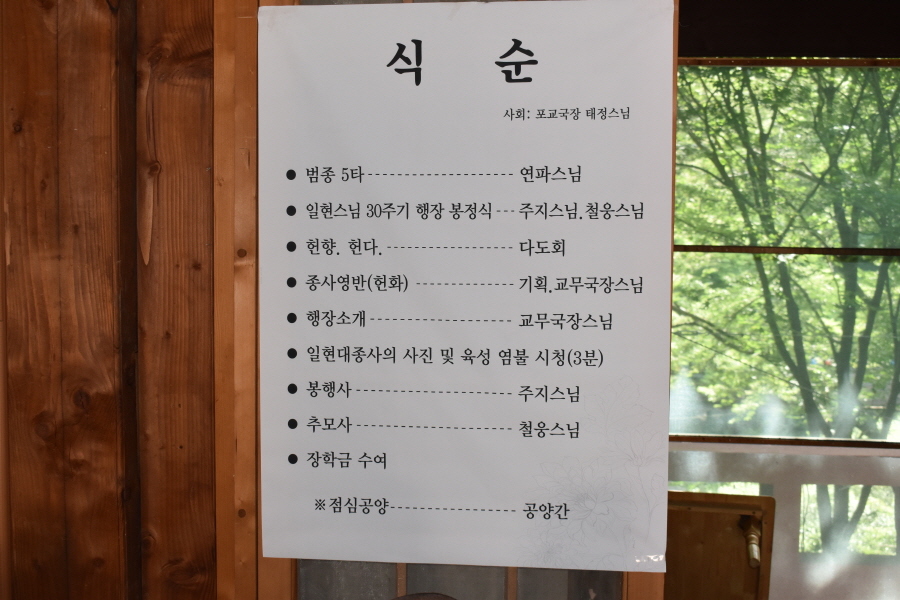 식 순
사회: 포교국장 태정스님
● 범종 5타-------------------- 연파스님
● 일현스님 30주기 행장 봉정식 --- 주지스님.철웅스님
● 헌향. 헌다. ----------------- 다도회
● 종사영반(헌화) ------------- 기획.교무국장스님
● 행장소개------------------- 교무국장스님
● 일현대종사의 사진 및 육성 염불 시청(3분)
● 봉행사--------------------- 주지스님
● 추모사--------------------- 철웅스님
● 장학금 수여
※점심공양----------------- 공양간